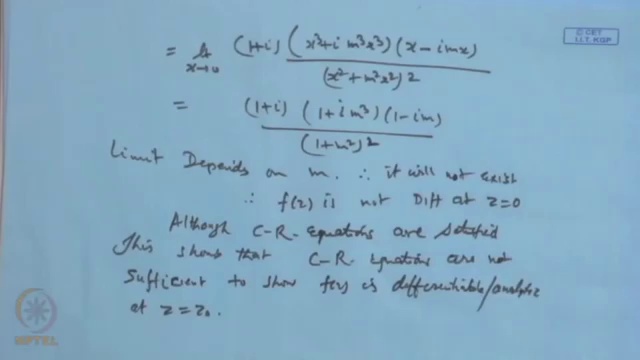 © CET
I.I.T. KGP
= lt x→0 (1+i) (x³+i m³x³) (x-imx) / (x²+m²x²)2
= (1+i) (1+i m³) (1-im) / (1+m²)2
Limit Depends on m. ∴ it will not exist
∴ f(z) is not Diff at z=0
Although C-R- Equations are satisfied
This shows that C-R- Equations are not
Sufficient to show f(z) is differentiable/analytic
at z=z₀.
NPTEL